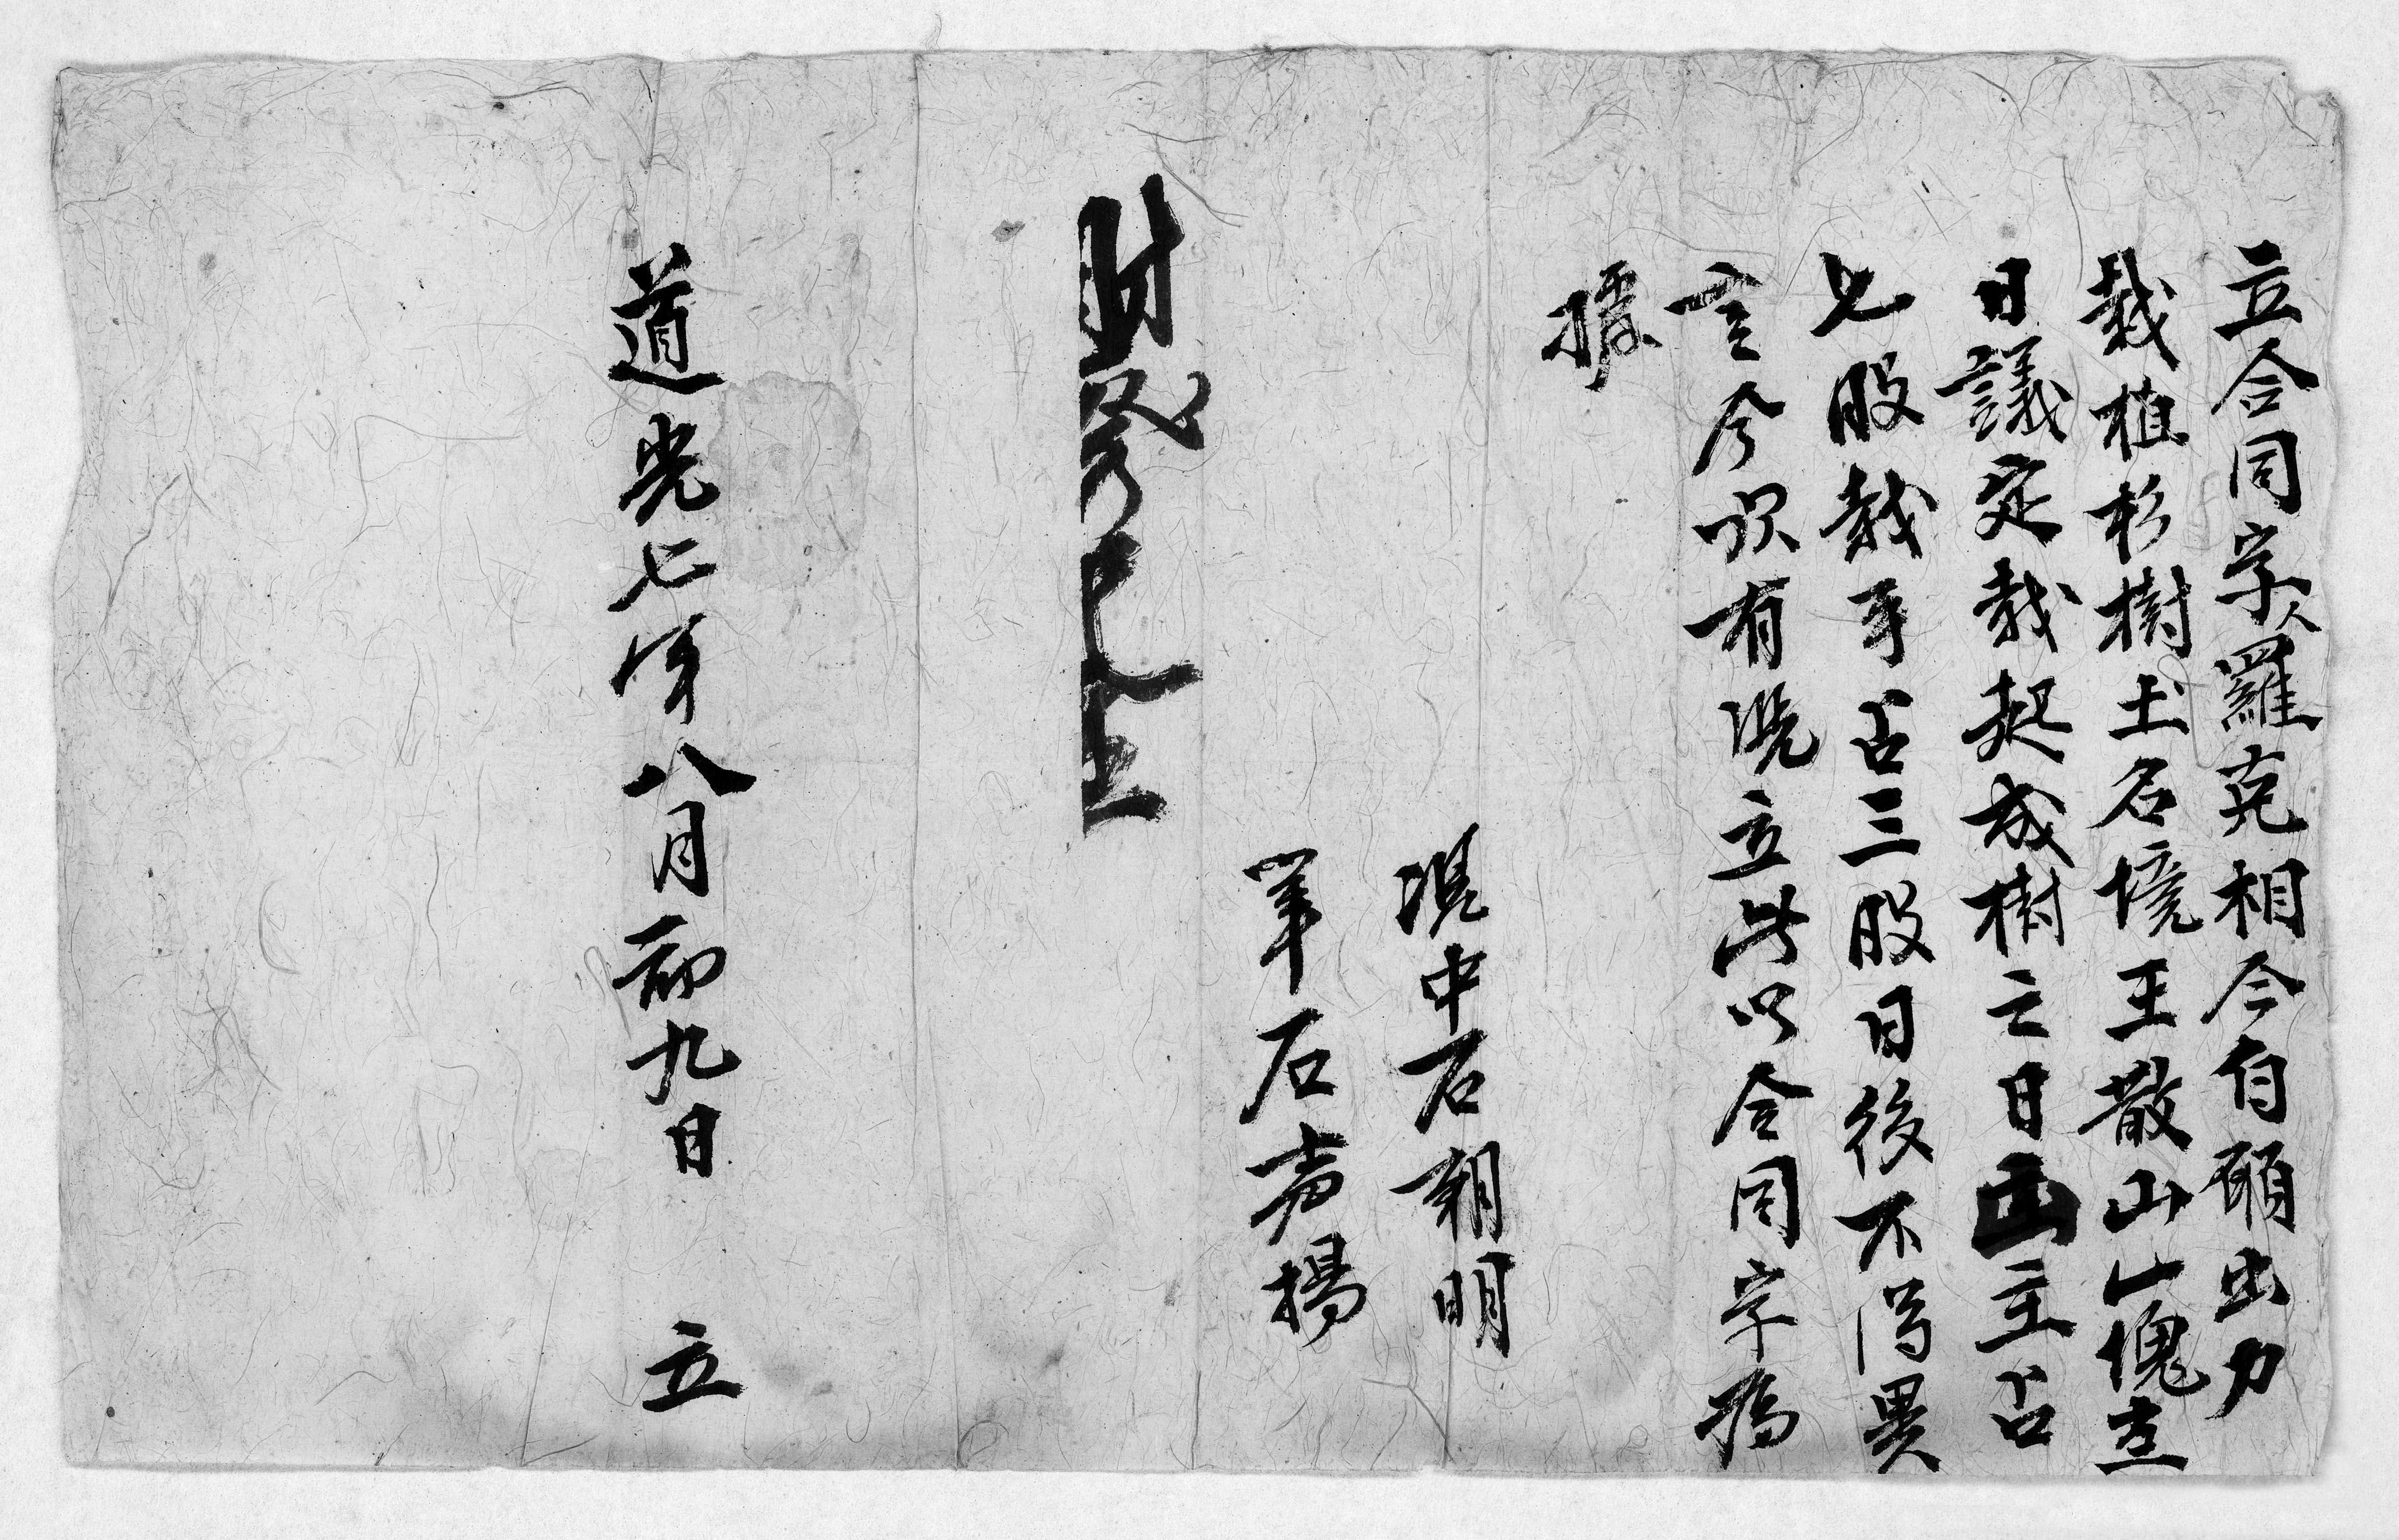 立合同字人羅克相今自願出力
栽植杉樹土名境王散山山塊土
日議定栽挖成樹之日土主占
七股栽手占三股日後不得異
言今欲有憑立此以合同字為
據
憑中石朝明
筆石声揚
道光七年八月初九日 立